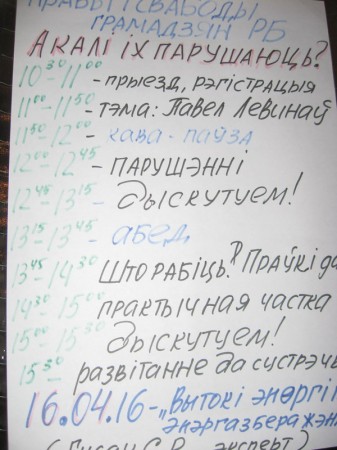 ПРАВЫ І СВАБОДЫ
ГРАМАДЗЯН РБ
А КАЛІ ІХ ПАРУШАЮЦЬ?
10³⁰-11⁰⁰ - прыезд, рэгістрацыя
11⁰⁰-11⁵⁰ - тэма: Павел Левинаў
11⁵⁰-12⁰⁰ - кава-паўза
12⁰⁰-12⁴⁵ - ПАРУШЭННІ
12⁴⁵-13¹⁵ - дыскутуем!
13¹⁵-13⁴⁵ - абед
13⁴⁵-14³⁰ ШТО РАБІЦЬ? Праўкі да
14³⁰-15⁰⁰ практычная частка
15⁰⁰-15³⁰ дыскутуем!
15³⁰ - развітанне да сустрэчы
16.04.16 - „Вытокі энергіі
энэргазберажэн
С.В. эксперт)